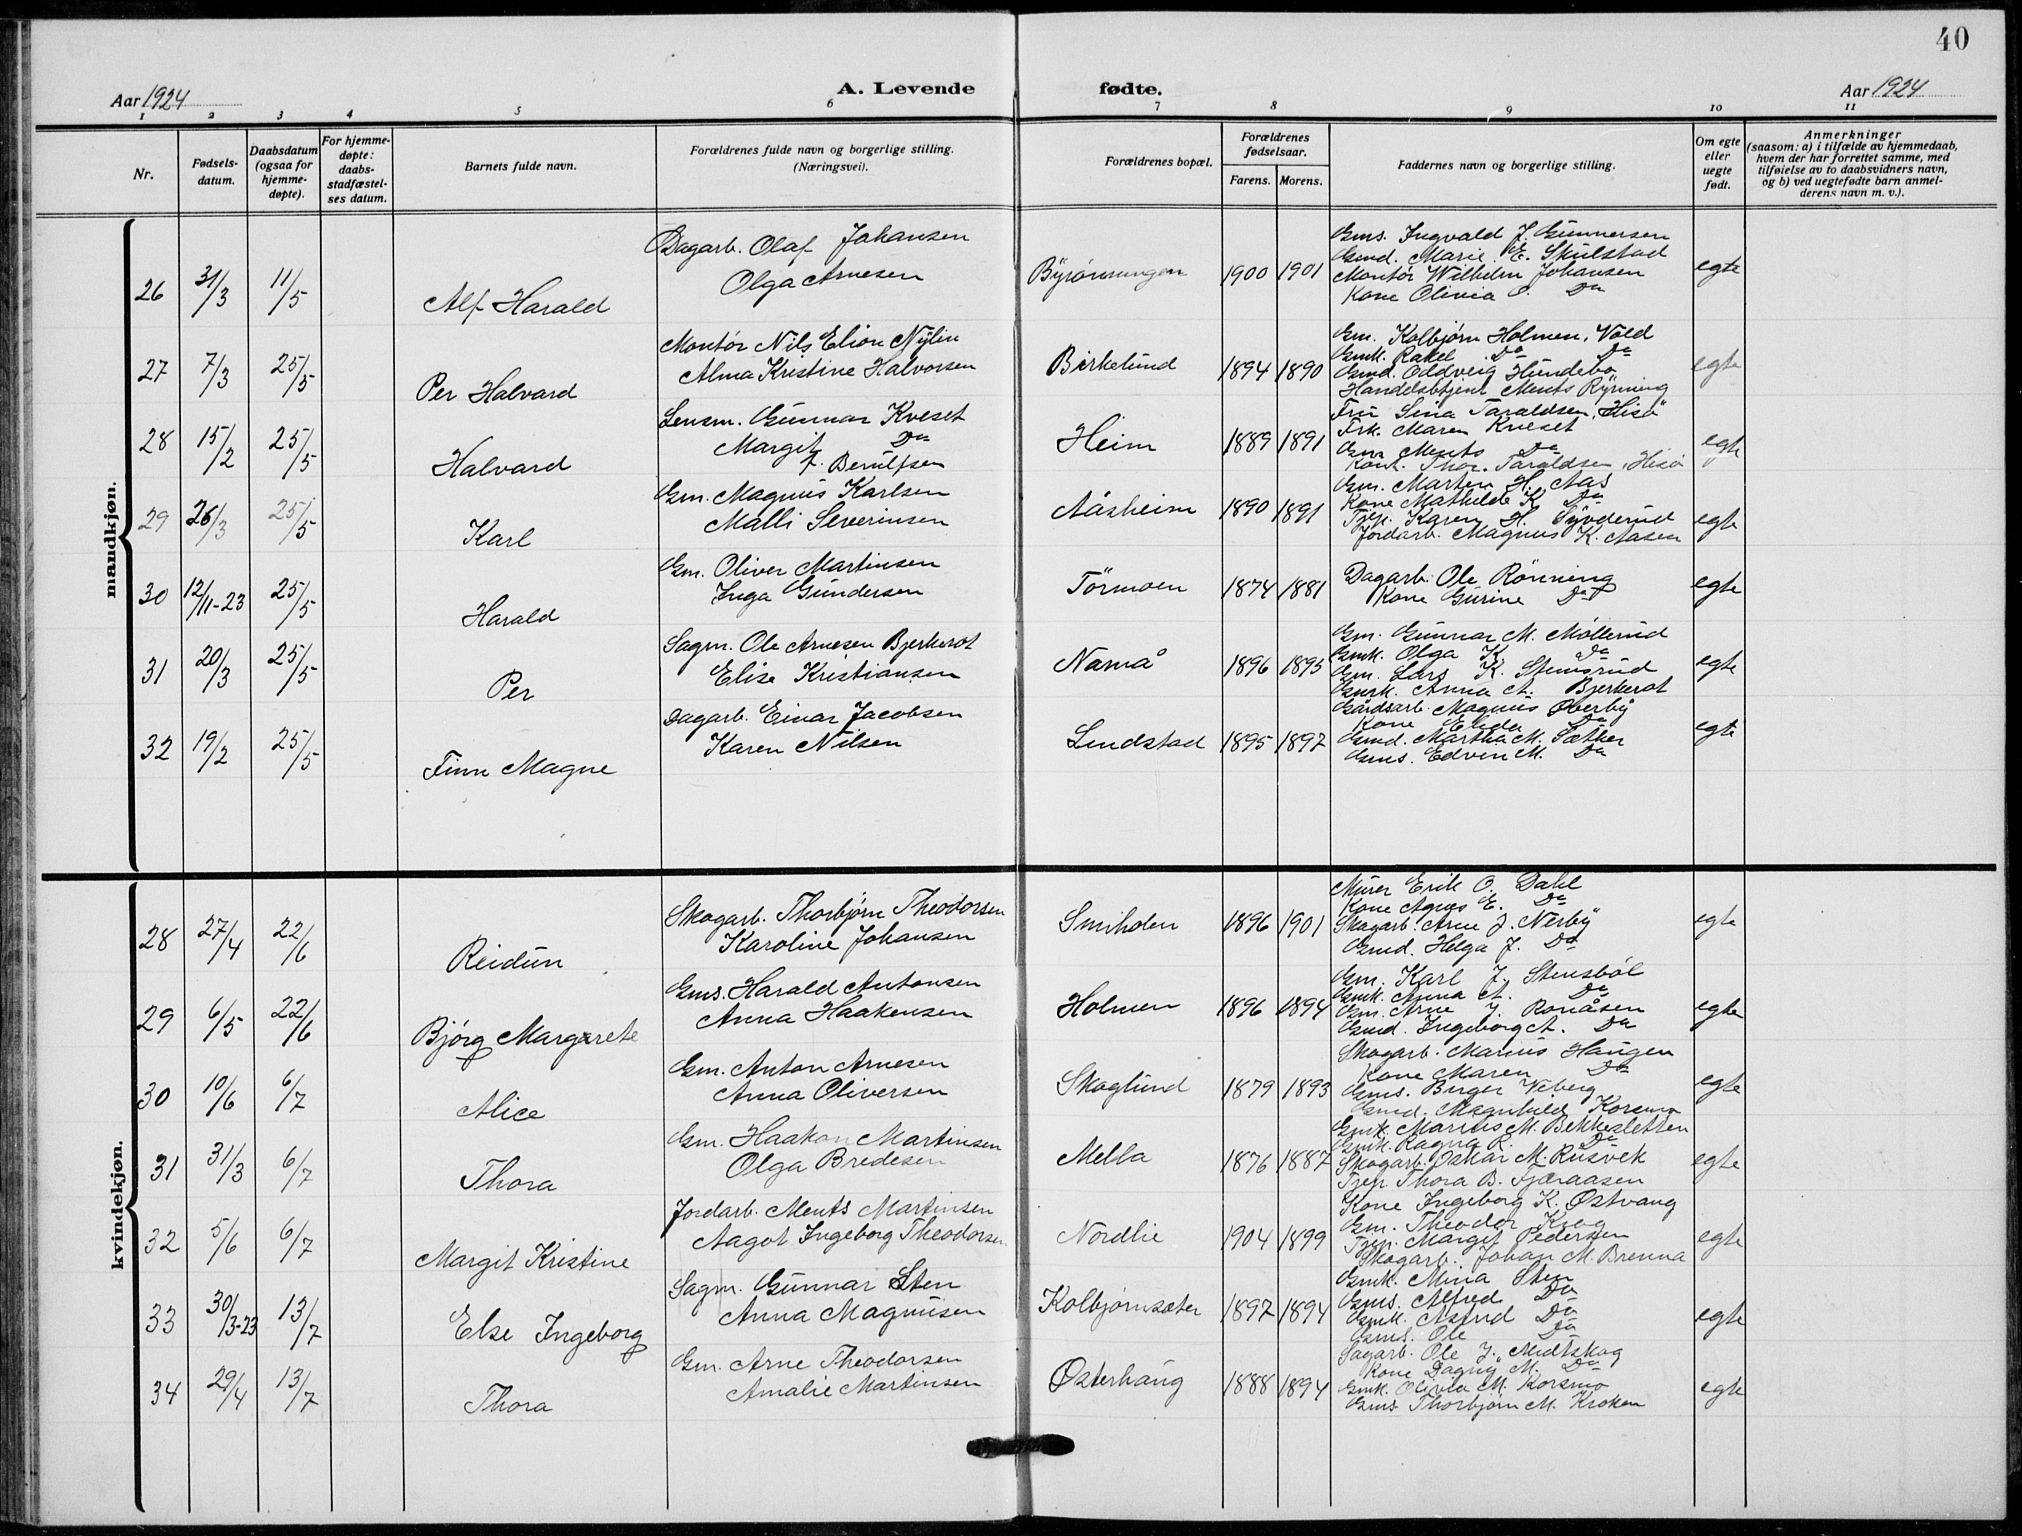 40
Aar 1924
A. Levende
fødte.
Aar 1924
1 2 3 4 5 6 7 8 9 10 11
Nr.
Fødsels-
datum.
Daabsdatum
(ogsaa for
hjemme-
døpte).
For hjemme-
døpte:
daabs-
stadfæstel-
ses datum.
Barnets fulde navn.
Forældrenes fulde navn og borgerlige stilling.
(Næringsvei).
Forældrenes bopæl.
Forældrenes
fødselsaar.
Farens. Morens.
Faddernes navn og borgerlige stilling.
Om egte
eller
uegte
født.
Anmerkninger
(saasom: a) i tilfælde av hjemmedaab,
hvem der har forrettet samme, med
tilføielse av to daabsvidners navn,
og b) ved uegtefødte barn anmel-
derens navn m. v.).
mandkjøn.
26 31/3 11/5 Alf Harald
Dagarb. Olaf Johansen
Olga Arnesen
1900 1901
Gms. Ingvald J. Gunnersen
Gmd. Marie E. Skulstad
Montør Wilhelm Johansen
Kone Olivia O. Do
egte
27 7/3 25/5 Per Halvard
Montør Nils Elion Nylin
Alma Kristine Halvorsen
Birkelund 1894 1890
Gm. Kolbjørn Holmen, Vold
Gmk. Rakel Do Do
Gmd. Oddveig Hundebo
Handelsbetjent Ments Rýnning
egte
28 15/2 25/5 Halvard
Lensm. Gunnar Kveset
Margit Do
f. Berulfsen
Heim 1889 1891
Fru Sina Taraldsen, Hisø
Frk. Maren Kveset
Gm. Ments Do
Kont. Thor. Taraldsen, Hisø
egte
29 26/3 25/5 Karl
Gm. Magnus Karlsen
Malli Severinsen
Aasheim 1890 1891
Gm. Marten H. Aas
Kone Mathilde K. Do
Tjen. Karen H. Tyvderud
Jordarb. Magnus K. Aasen
egte
30 12/11-23 25/5 Harald
Gm. Oliver Martinsen
Inga Gundersen
Tørmoen 1874 1881
Dagarb. Ole Rønning
Kone Gurine Do
egte
31 20/3 25/5 Per
Sagm. Ole Arnesen Bjerkerot
Elise Kristiansen
Namå 1896 1895
Gm. Gunnar M. Møllerud
Gmk. Olga K. Do
Gm. Lars K. Stensrud
Gmk. Anna A. Bjerkerot
egte
32 19/2 25/5 Finn Magne
Dagarb. Einar Jacobsen
Karen Nilsen
Lindstad 1895 1897
Gårdsarb. Magnus Øberby
Kone Elida Do
Gmd. Martha M. Sæther
Gms. Edvin M. Do
egte
kvindekjøn.
28 27/4 22/6 Reidun
Skogarb. Thorbjørn Theodorsen
Karoline Johansen
Smiholen 1896 1901
Murer Erik O. Dahl
Kone Agnes E. Do
Skogarb. Arne J. Nerby
Gmd. Helga J. Do
egte
29 6/5 22/6 Bjørg Margarete
Gms. Harald Antonsen
Anna Haakensen
Holmen 1896 1894
Gm. Karl J. Stensbøl
Gmk. Anna A. Do
Gm. Arne J. Ronåsen
Gmd. Ingeborg A. Do
egte
30 10/6 6/7 Alice
Gm. Anton Arnesen
Anna Oliversen
Skoglund 1879 1893
Skogarb. Marius Haugen
Kone Maren Do
Gms. Birger Viberg
Gmd. Magnhild Korsmo
egte
31 31/3 6/7 Thora
Gm. Haakon Martinsen
Olga Bredesen
Mella 1876 1887
Gmk. Marius M. Bekkesletten
Gmk. Ragna R. Do
Skogarb. Oskar M. Rusvek
Tjen Thora B. Fjæraasen
egte
32 5/6 6/7 Margit Kristine
Jordarb. Ments Martinsen
Aagot Ingeborg Theodorsen
Nordlie 1904 1899
Kone Ingeborg K. Østvang
Gm. Theodor Krog
Tjen. Margit Pedersen
Skogarb. Johan M. Brenna
egte
33 30/3-23 13/7 Else Ingeborg
Sagm. Gunnar Sten
Anna Magnusen
Kolbjørnsæter 1897 1894
Gmk. Mina Sten
Gms. Alfred Do
Gmk. Astrid Do
Gms. Ole Do
egte
34 29/4 13/7 Thora
Gm. Arne Theodorsen
Amalie Martinsen
Østerhaug 1888 1894
Sagarb. Ole J. Midtskog
Kone Dagny M. Do
Gmk. Olivia M. Korsmo
Gms. Thorbjørn M. Kroken
egte